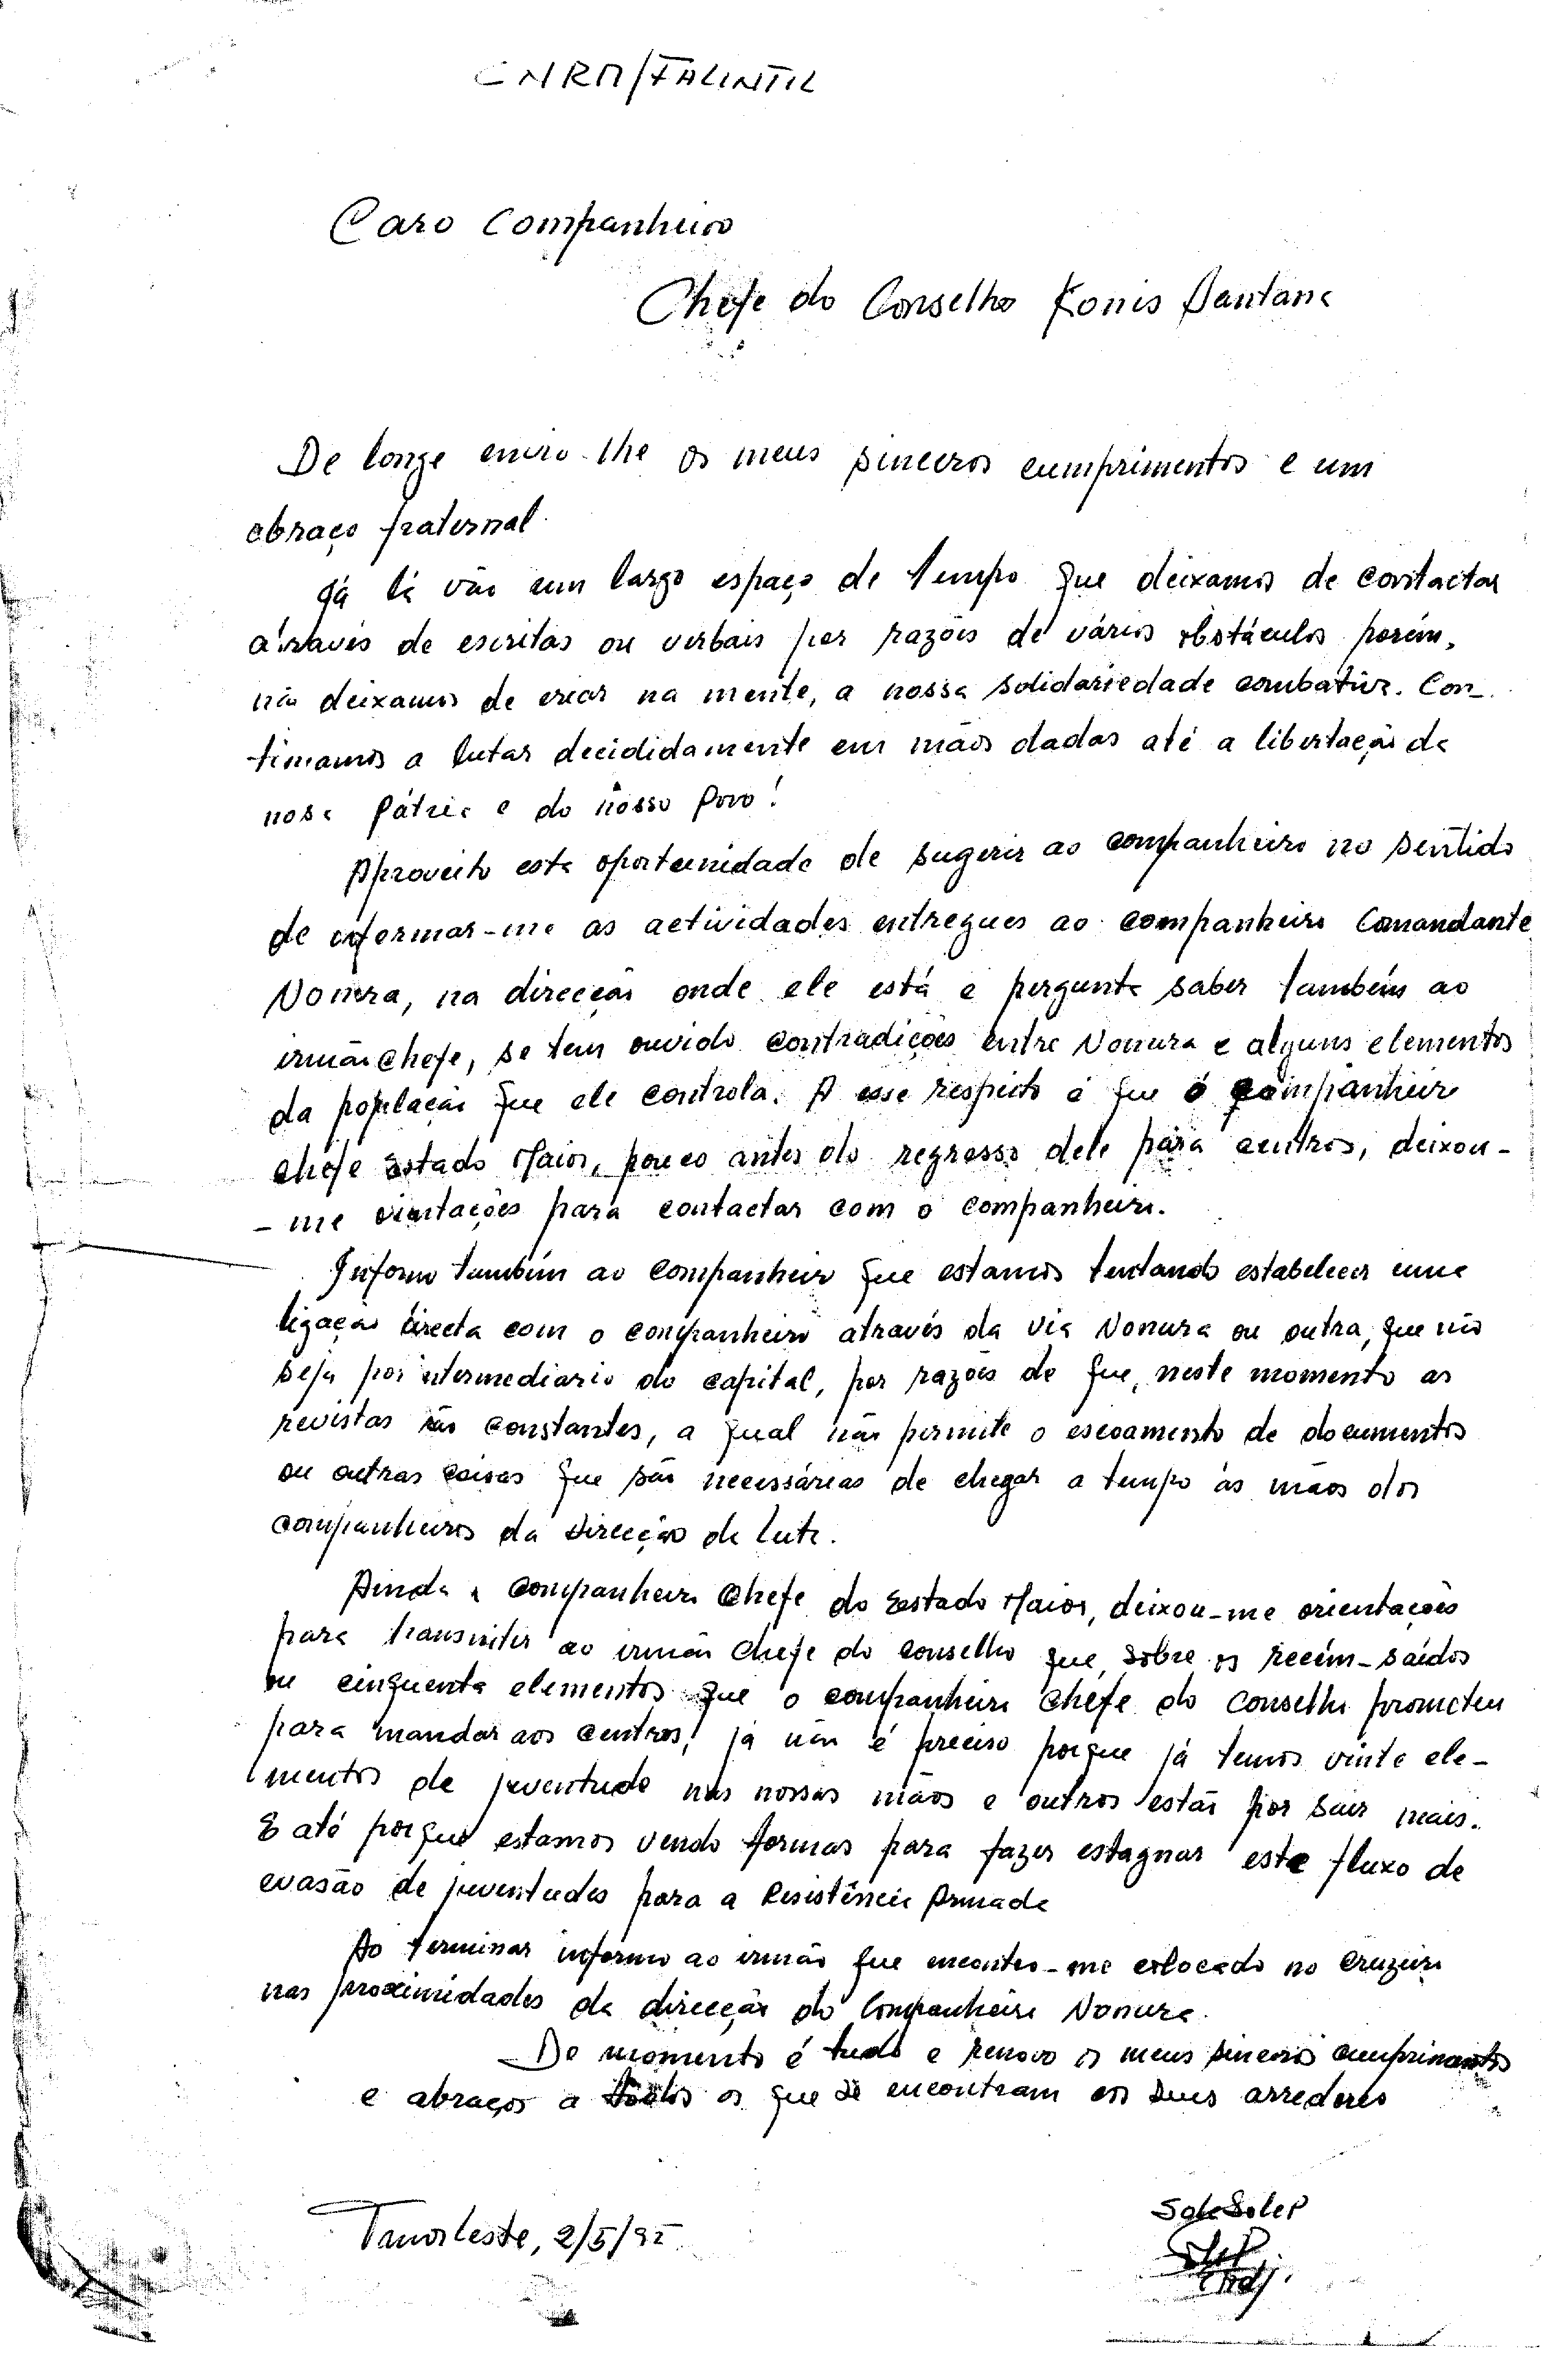 CNRM/FALINTIL
Caro Companheiro
Chefe do Conselho Konis Santana
De longe envio-lhe os meus sinceros cumprimentos e um
abraço fraternal.
Já lá vão um largo espaço de tempo que deixamos de contactar
através de escritas ou verbais por razões de vários obstáculos porém,
não deixamos de criar na mente, a nossa solidariedade combativa. Con-
tinuamos a lutar decididamente em mãos dadas até a libertação da
nossa Pátria e do nosso Povo!
Aproveito esta oportunidade de sugerir ao companheiro no sentido
de informar-me as actividades entregues ao companheiro Comandante
Nonura, na direcção onde ele está e pergunta saber também ao
irmão chefe, se tem ouvido contradições entre Nonura e alguns elementos
da população que ele controla. A esse respeito é que o companheiro
chefe Estado Maior, pouco antes do regresso dele para centros, deixou-
-me orientações para contactar com o companheiro.
Informo também ao companheiro que estamos tentando estabelecer uma
ligação directa com o companheiro através da via Nonura ou outra, que não
seja por intermediario do capital, por razões de que, neste momento as
revistas são constantes, a qual não permite o escoamento de documentos
ou outras coisas que são necessárias de chegar a tempo às mãos dos
companheiros da Direcção da luta.
Ainda o companheiro Chefe do Estado Maior, deixou-me orientações
para transmitir ao irmão chefe do conselho que, sobre os recém-saídos
ou cinquenta elementos que o companheiro Chefe do Conselho prometeu
para mandar aos centros, já não é preciso porque já temos vinte ele-
mentos de juventude nas nossas mãos e outros estão por sair mais.
E até porque estamos vendo formas para fazer estagnar este fluxo de
evasão de juventudes para a Resistência Armada
Ao terminar informo ao irmão que encontro-me colocado no cruzeiro
nas proximidades da direcção do Companheiro Nonura.
De momento é tudo e renovo os meus sinceros cumprimentos
e abraços a todos os que se encontram em seus arredores
Timorleste, 2/5/95